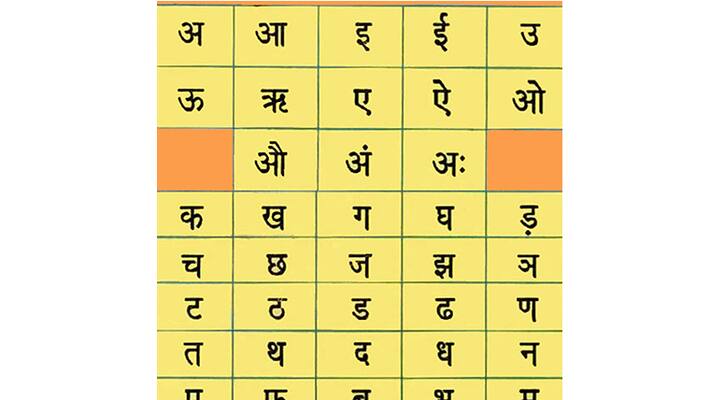 अ आ इ ई उ
ऊ ऋ ए ऐ ओ
औ अं अः
क ख ग घ ड़
च छ ज झ ञ
ट ठ ड ढ ण
त थ द ध न